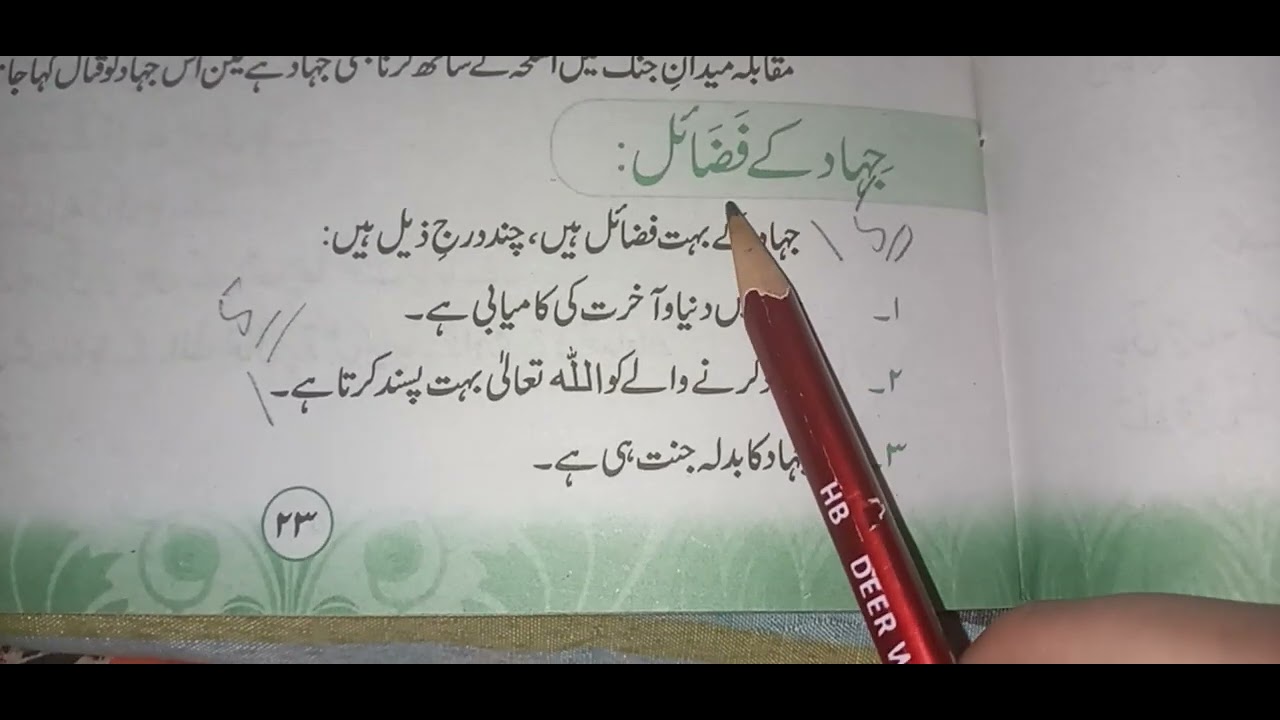 مقابلہ میدانِ جنگ میں اسلحہ کے ساتھ کرنا بھی جہاد ہے لیکن اس جہاد کو قتال کہا جا
جِہاد کے فَضَائل:
جہاد کے بہت فضائل ہیں، چند درجِ ذیل ہیں:
۱۔ میں دنیا و آخرت کی کامیابی ہے۔
۲۔ کرنے والے کو اللہ تعالیٰ بہت پسند کرتا ہے۔
۳۔ جہاد کا بدلہ جنت ہی ہے۔
۲۳
HB DEER W